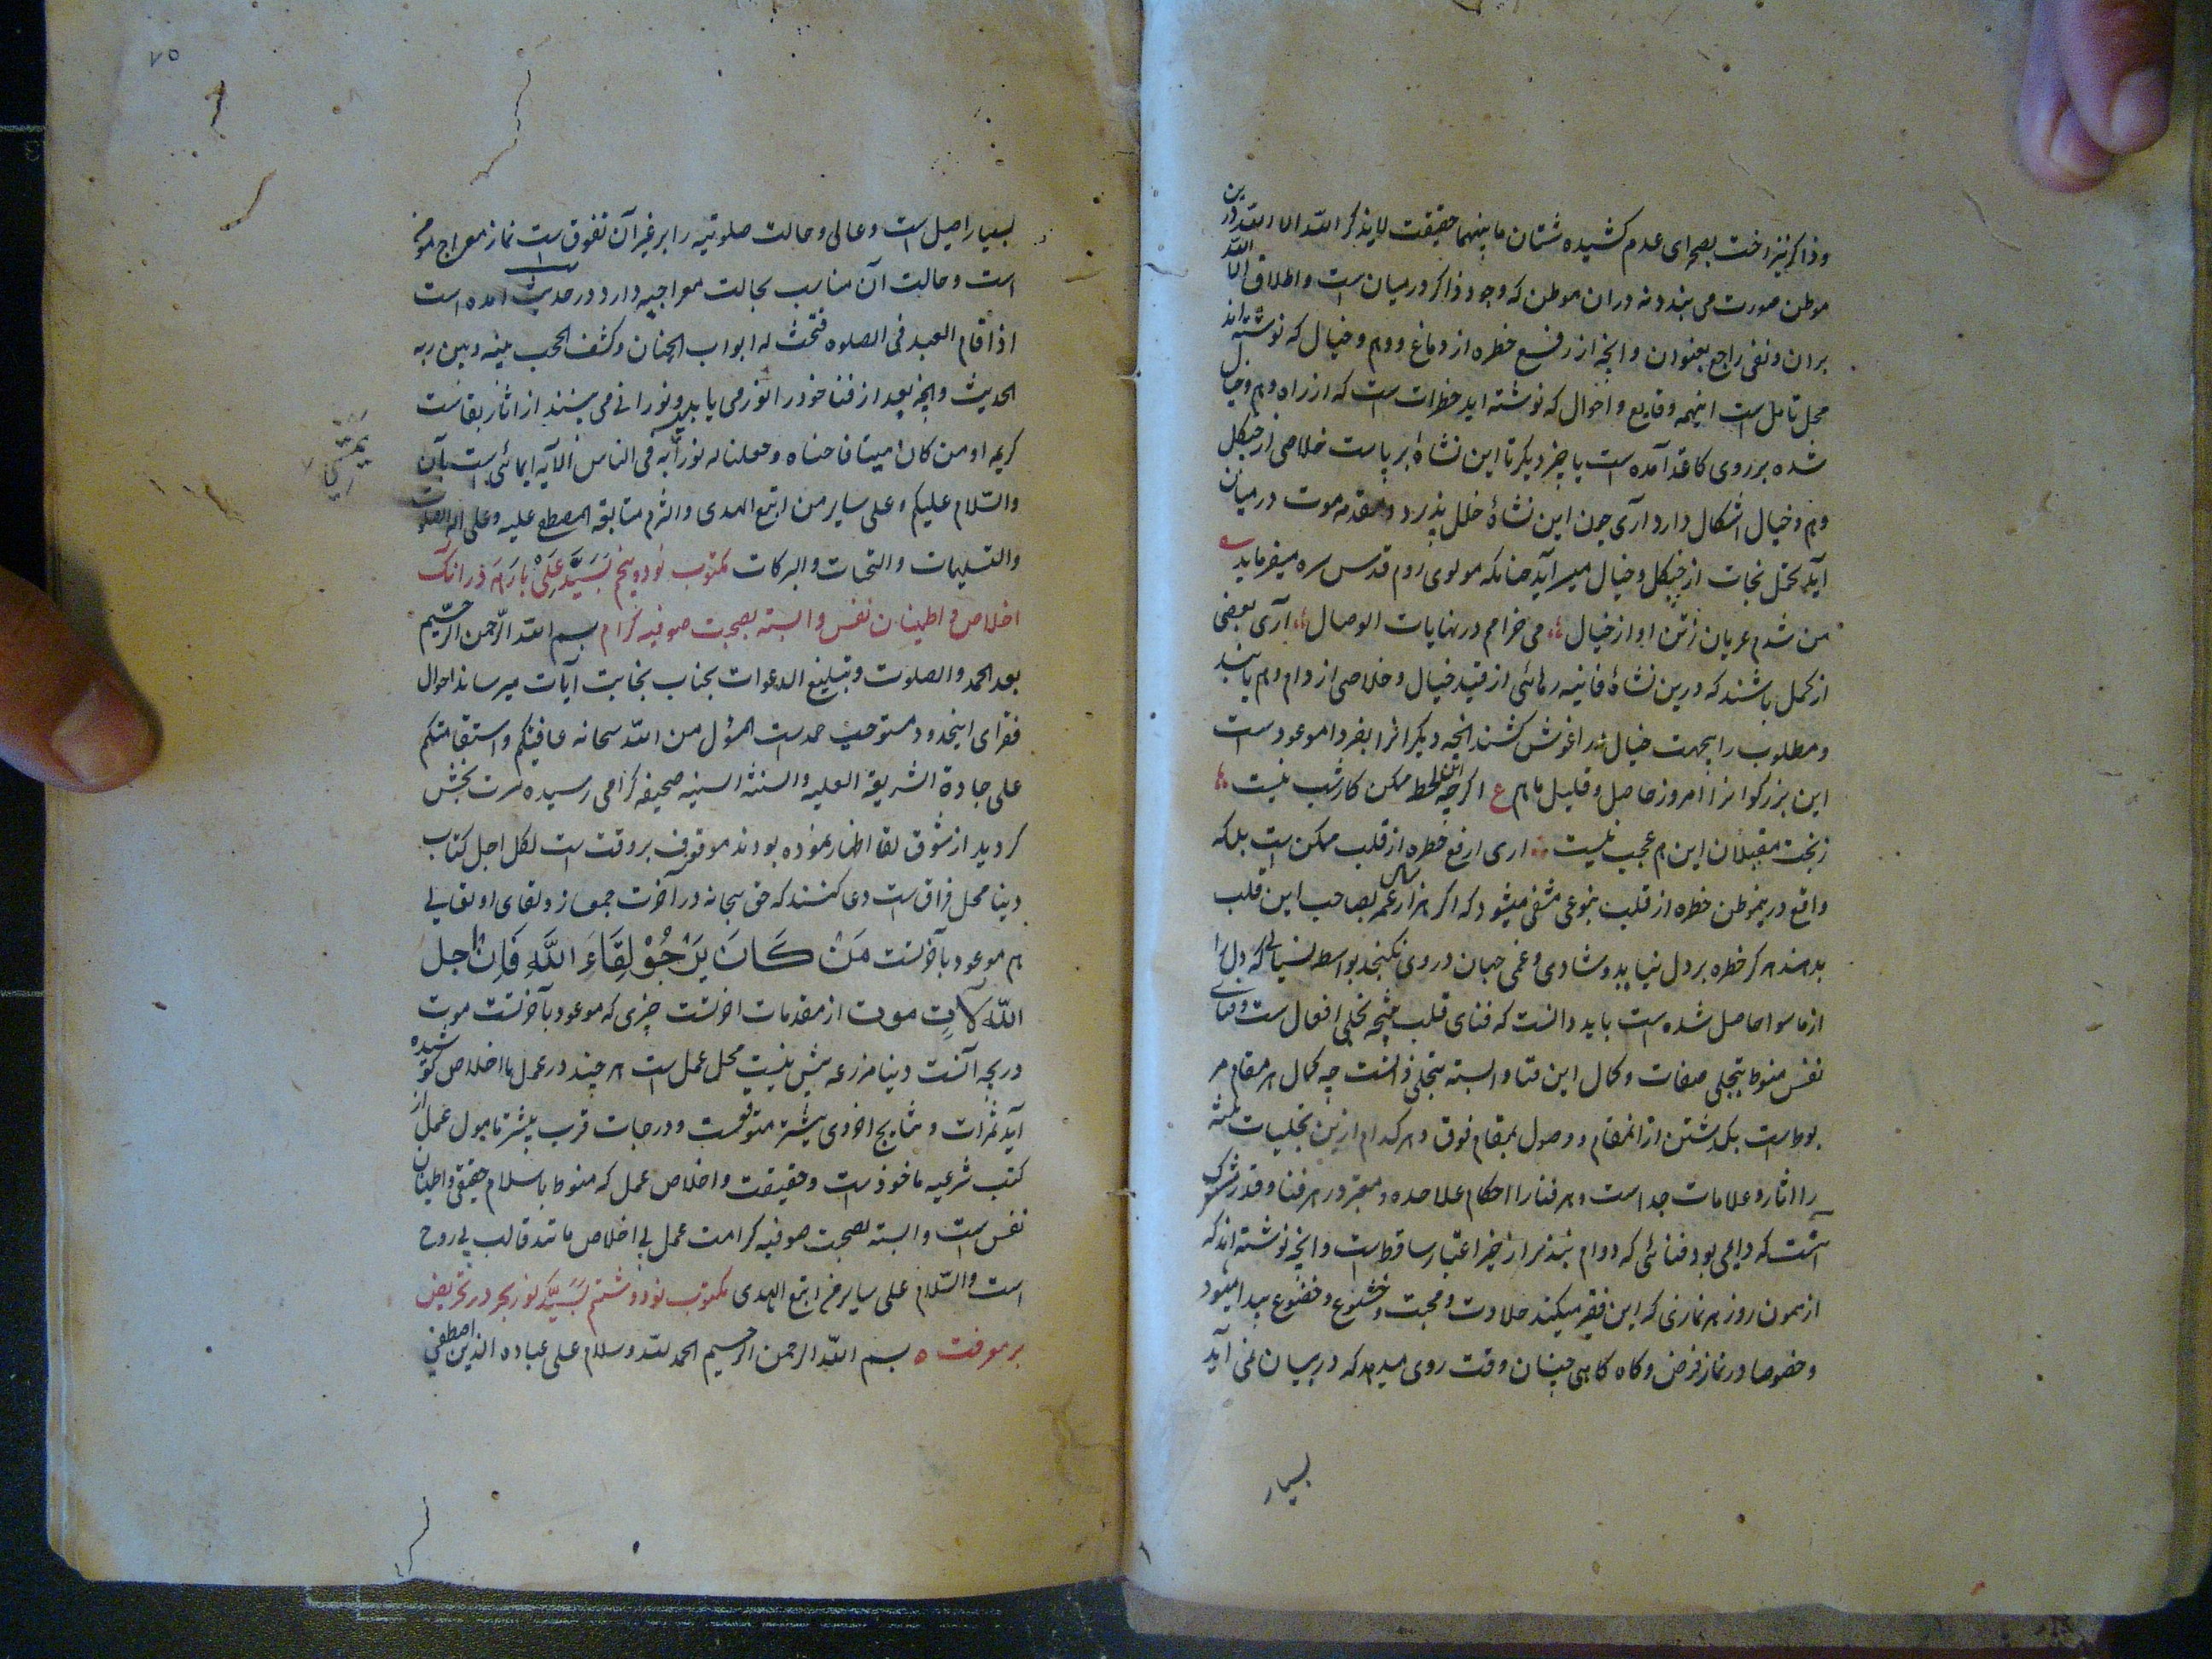 وذاکر نیز رخت بصحرای عدم کشیده شتان ما بینهما حقیقت لا یذکر الله الا الله درین
موطن صورت می بندد نه دران موطن که وجود ذاکر در میان است و اطلاق الله
بران و نفی راجع بعنوان وانچه از رفع خطره از دماغ و وهم و خیال که نوشته اند
محل تامل است اینهمه وقایع و احوال که نوشته اید خطرات است که از راه وهم و خیال
شده بر روی کاغذ آمده است یا چیز دیگر تا این نشاه بر پاست خلاصی از چنگل
وهم و خیال اشکال دارد آری چون این نشاهٔ خلل پذیرد و مقدمه موت در میان
آید محتمل نجات از چنگل و خیال میسر آید چنانکه مولوی روم قدس سره میفرماید
من شدم عریان ز تن او از خیال می خرامم در نهایات الوصال آری بعضی
از کمل باشند که درین نشاهٔ فانیه رهائی از قید خیال و خلاصی از دام وهم یابند
و مطلوب را بیجهت خیال در اغوش کشند انچه دیگرانرا بفردا موعود است
این بزرگوانرا امروز حاصل و قلیل ماهم ع اگرچه این لحظه ممکن کار شب نیست
ز بخت مقبلان این هم عجب نیست اری ارفع خطره از قلب ممکن است بلکه
واقع درینموطن خطره از قلب بنوعی منتفی میشود که اگر هزار سال عمر بصاحب این قلب
بدهند هرگز خطره بر دل نیاید و شادی و غمی جهان در وی نگنجد بواسطه نسیانی که دل را
از ماسوا حاصل شده است باید دانست که فنای قلب نتیجه تجلی افعال است و فنای
نفس منوط بتجلی صفات و کمال این فنا وابسته بتجلی ذاتست چه کمال هر مقام مر
بوط است بگذشتن ازانمقام و وصول بمقام فوق و هر کدام ازین تجلیات ثلثه
را اثار و علامات جداست و هر فنا را احکام علاحده و معتبر در هر فنا و قدر مشترک
آنست که دایمی بود فنائی که دوام نپذیرد از حیز اعتبار ساقط است وانچه نوشته اند که
از همون روز هر نمازی که این فقیر میکند حلاوت و محبت و خشوع و خضوع پیدا میشود
و خصوصا در نماز فرض و گاه گاهی چنان وقت روی میدهد که در بیان نمی آید
بسیار
۷۵
بسیار اصیل است و عالی و حالت صلوتیه را بر غیر آن تفوق است نماز معراج مؤمن
است و حالت آن مناسب بحالت معراجیه دارد در حدیث آمده است
اذا قام العبد فی الصلوه فتحت له ابواب الجنان و کشف الحجب بینه و بین ربه
الحدیث وانچه بعد از فنا خود را نور می یابد و نورانی می بیند از اثار بقاست
کریمه او من کان میتا فاحییناه و جعلنا له نورا یمشی به فی الناس الآیه ایمائی است بآن
والسلام علیکم و علی سایر من اتبع الهدی والتزم متابعه المصطفی علیه و علی اله الصلوت
والتسلیمات والتحیات والبرکات مکتوب نود و پنجم بسید علی بارهه در آنکه
اخلاص و اطمینان نفس وابسته بصحبت صوفیه کرام بسم الله الرحمن الرحیم
بعد الحمد والصلوت و تبلیغ الدعوات بجناب نجابت آیات میرساند احوال
فقرای اینحدود مستوجب حمد است المسؤل من الله سبحانه عافیتکم و استقامتکم
علی جادة الشریعة العلیه والسنه السنیه صحیفه گرامی رسیده مسرت بخش
گردید از شوق لقا اظهار نموده بودند موقوف بر وقت است لکل اجل کتاب
دنیا محل فراق است دعا کنند که حق سبحانه در آخرت جمع سازد و لقای او تعالی
هم موعود بآخرتست مَنْ كَانَ يَرْجُوْ لِقَاءَ اللّٰهِ فَاِنَّ اجل
اللّٰه لآتٍ موت از مقدمات اخرتست چیزی که موعود بآخرتست موت
دریچه آنست دنیا مزرعه بیش نیست محل عمل است هر چند در عمل با اخلاص کوشیده
آید ثمرات و نتایج اخروی بیشتر متوقعست و درجات قرب بیشتر مامول عمل از
کتب شرعیه ماخوذ است و حقیقت و اخلاص عمل که منوط باسلام حقیقی و اطمینان
نفس است وابسته بصحبت صوفیه کرامت عمل بی اخلاص مانند قالب بی روح
است والسلام علی سایر من اتبع الهدی مکتوب نود و ششم بسید نور بحر در تحریض
بر معرفت ه بسم الله الرحمن الرحیم الحمد لله و سلام علی عباده الذین اصطفی